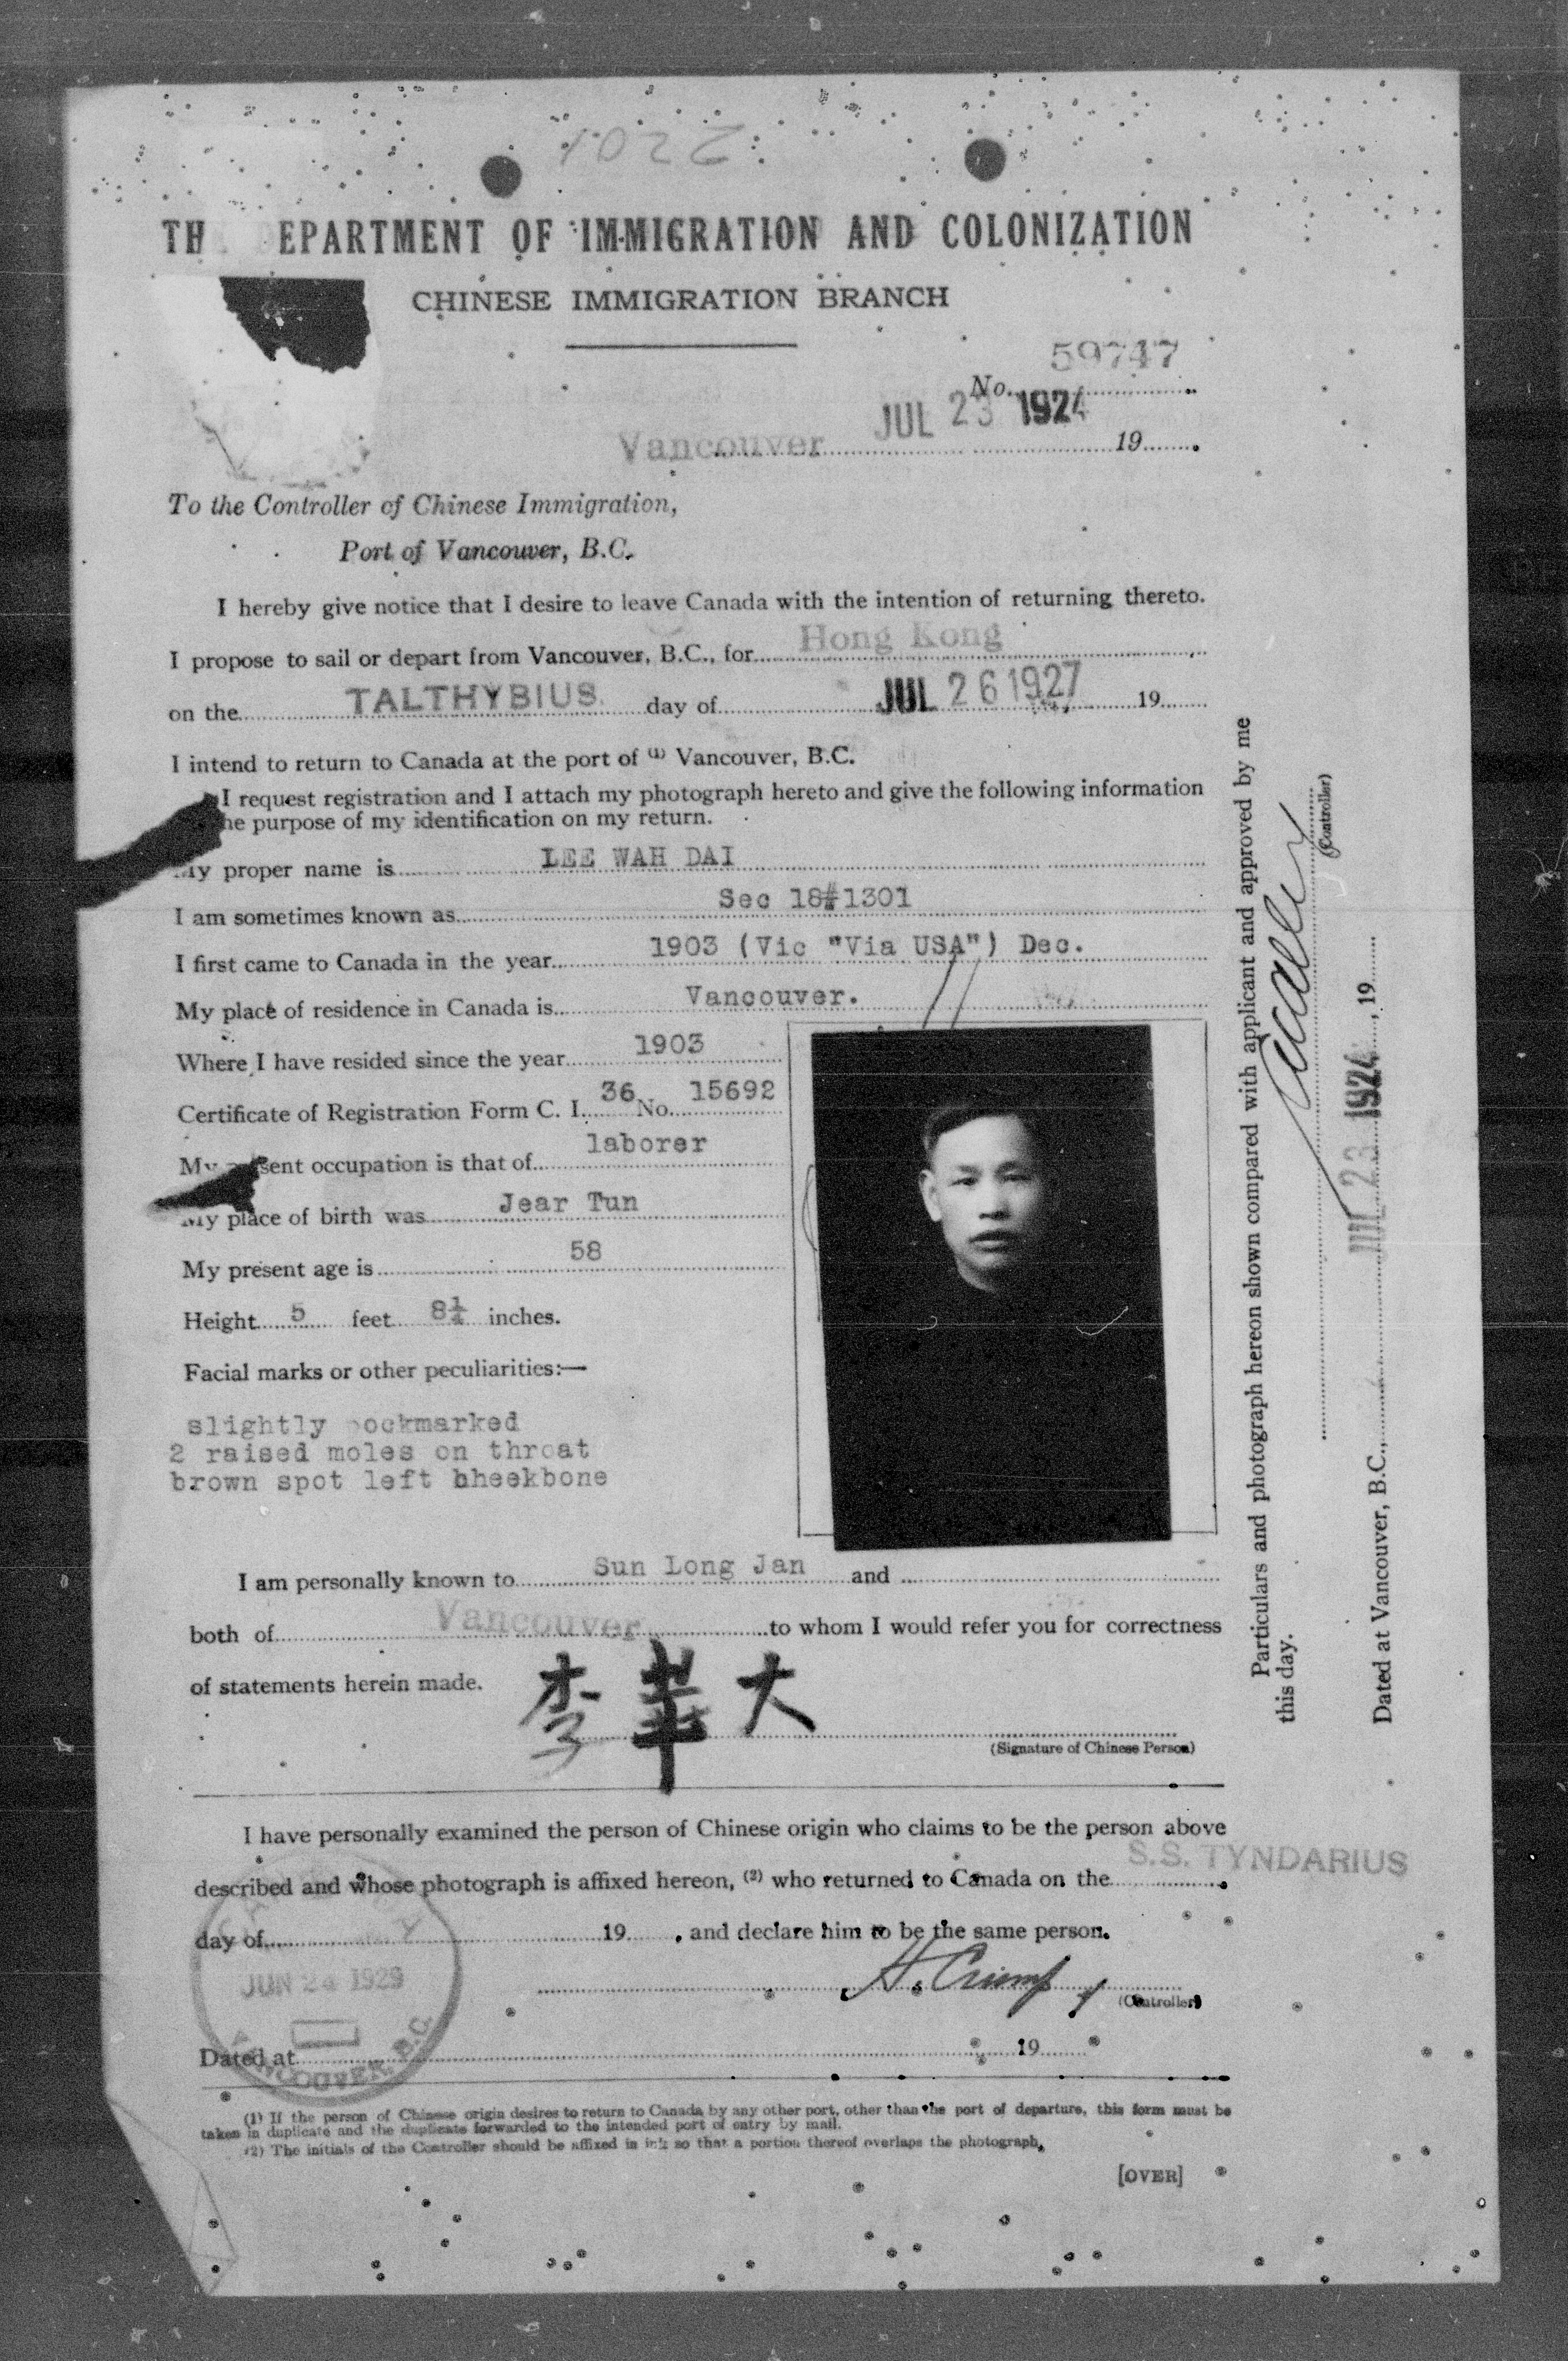 1022
TH EPARTMENT OF IMMIGRATION AND COLONIZATION
CHINESE IMMIGRATION BRANCH
59747
No.
Vancouver JUL 23 1924 19
To the Controller of Chinese Immigration,
Port of Vancouver, B.C.
I hereby give notice that I desire to leave Canada with the intention of returning thereto.
I propose to sail or depart from Vancouver, B.C., for Hong Kong
on the TALTHYBIUS. day of JUL 26 1927 19
I intend to return to Canada at the port of (1) Vancouver, B.C.
I request registration and I attach my photograph hereto and give the following information
he purpose of my identification on my return.
My proper name is LEE WAH DAI
I am sometimes known as Sec 18#1301
I first came to Canada in the year 1903 (Vic "Via USA") Dec.
My place of residence in Canada is Vancouver.
Where I have resided since the year 1903
Certificate of Registration Form C. I. 36 No. 15692
My sent occupation is that of laborer
My place of birth was Jear Tun
My present age is 58
Height 5 feet 8½ inches.
Facial marks or other peculiarities:—
slightly pockmarked
2 raised moles on throat
brown spot left cheekbone
I am personally known to Sun Long Jan and
both of Vancouver to whom I would refer you for correctness
of statements herein made.
李華大
(Signature of Chinese Person)
I have personally examined the person of Chinese origin who claims to be the person above
described and whose photograph is affixed hereon, (2) who returned to Canada on the S.S. TYNDARIUS
day of 19 , and declare him to be the same person.
JUN 24 1929
VANCOUVER, B.C.
H. Crump
(Controller)
Dated at 19
(1) If the person of Chinese origin desires to return to Canada by any other port, other than the port of departure, this form must be
taken in duplicate and the duplicate forwarded to the intended port of entry by mail.
(2) The initials of the Controller should be affixed in ink so that a portion thereof overlaps the photograph.
[OVER]
Particulars and photograph hereon shown compared with applicant and approved by me
this day.
(Controller)
Dated at Vancouver, B.C., JUL 23 1924, 19